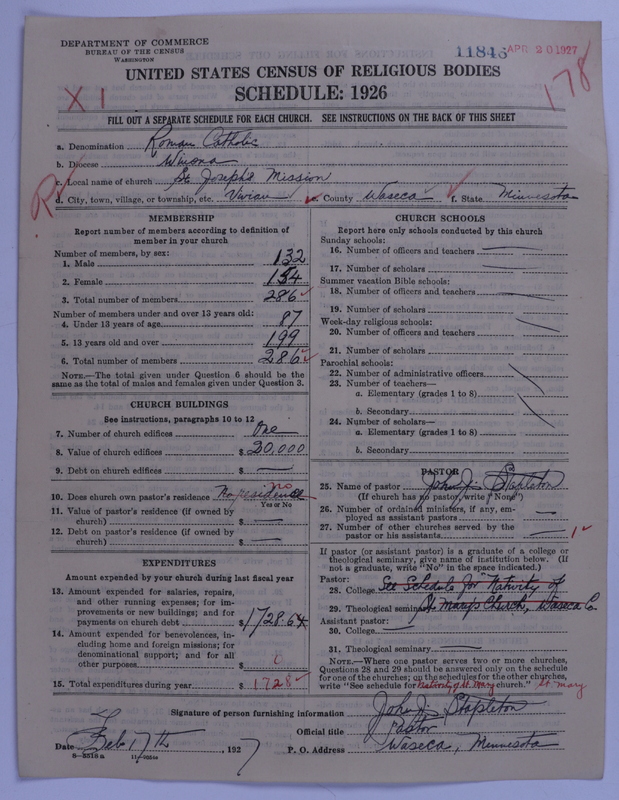 DEPARTMENT OF COMMERCE
BUREAU OF THE CENSUS
WASHINGTON
11846 APR 20 1927
178
X 1
UNITED STATES CENSUS OF RELIGIOUS BODIES
SCHEDULE: 1926
FILL OUT A SEPARATE SCHEDULE FOR EACH CHURCH. SEE INSTRUCTIONS ON THE BACK OF THIS SHEET
a. Denomination Roman Catholic
b. Diocese Winona
c. Local name of church St Josephs Mission
d. City, town, village, or township, etc. Vivian e. County Waseca f. State Minnesota
MEMBERSHIP
Report number of members according to definition of
member in your church
Number of members, by sex:
1. Male 132
2. Female 154
3. Total number of members 286
Number of members under and over 13 years old:
4. Under 13 years of age 87
5. 13 years old and over 199
6. Total number of members 286
NOTE.—The total given under Question 6 should be
the same as the total of males and females given under Question 3.
CHURCH BUILDINGS
See instructions, paragraphs 10 to 12
7. Number of church edifices One
8. Value of church edifices $ 20,000
9. Debt on church edifices $
10. Does church own pastor's residence No residence no
Yes or No
11. Value of pastor's residence (if owned by
church) $
12. Debt on pastor's residence (if owned by
church) $
EXPENDITURES
Amount expended by your church during last fiscal year
13. Amount expended for salaries, repairs,
and other running expenses; for im-
provements or new buildings; and for
payments on church debt $ 1728.64
14. Amount expended for benevolences, in-
cluding home and foreign missions; for
denominational support; and for all
other purposes $ 0
15. Total expenditures during year $ 1728
CHURCH SCHOOLS
Report here only schools conducted by this church
Sunday schools:
16. Number of officers and teachers
17. Number of scholars
Summer vacation Bible schools:
18. Number of officers and teachers
19. Number of scholars
Week-day religious schools:
20. Number of officers and teachers
21. Number of scholars
Parochial schools:
22. Number of administrative officers
23. Number of teachers—
a. Elementary (grades 1 to 8)
b. Secondary
24. Number of scholars—
a. Elementary (grades 1 to 8)
b. Secondary
PASTOR
25. Name of pastor John J. Stapleton
(If church has no pastor, write "None")
26. Number of ordained ministers, if any, em-
ployed as assistant pastors
27. Number of other churches served by the
pastor or his assistants 1
If pastor (or assistant pastor) is a graduate of a college or
theological seminary, give name of institution below. (If
not a graduate, write "No" in the space indicated.)
Pastor:
28. College See Schedule for Nativity of
29. Theological seminary St Marys Church, Waseca Co.
Assistant pastor:
30. College
31. Theological seminary
NOTE.—Where one pastor serves two or more churches,
Questions 28 and 29 should be answered only on the schedule
for one of the churches; on the schedules for the other churches,
write "See schedule for Nativity of St. Mary church." St. Mary
Signature of person furnishing information John J. Stapleton
Official title Pastor
Date Feb 17th, 1927 P. O. Address Waseca, Minnesota